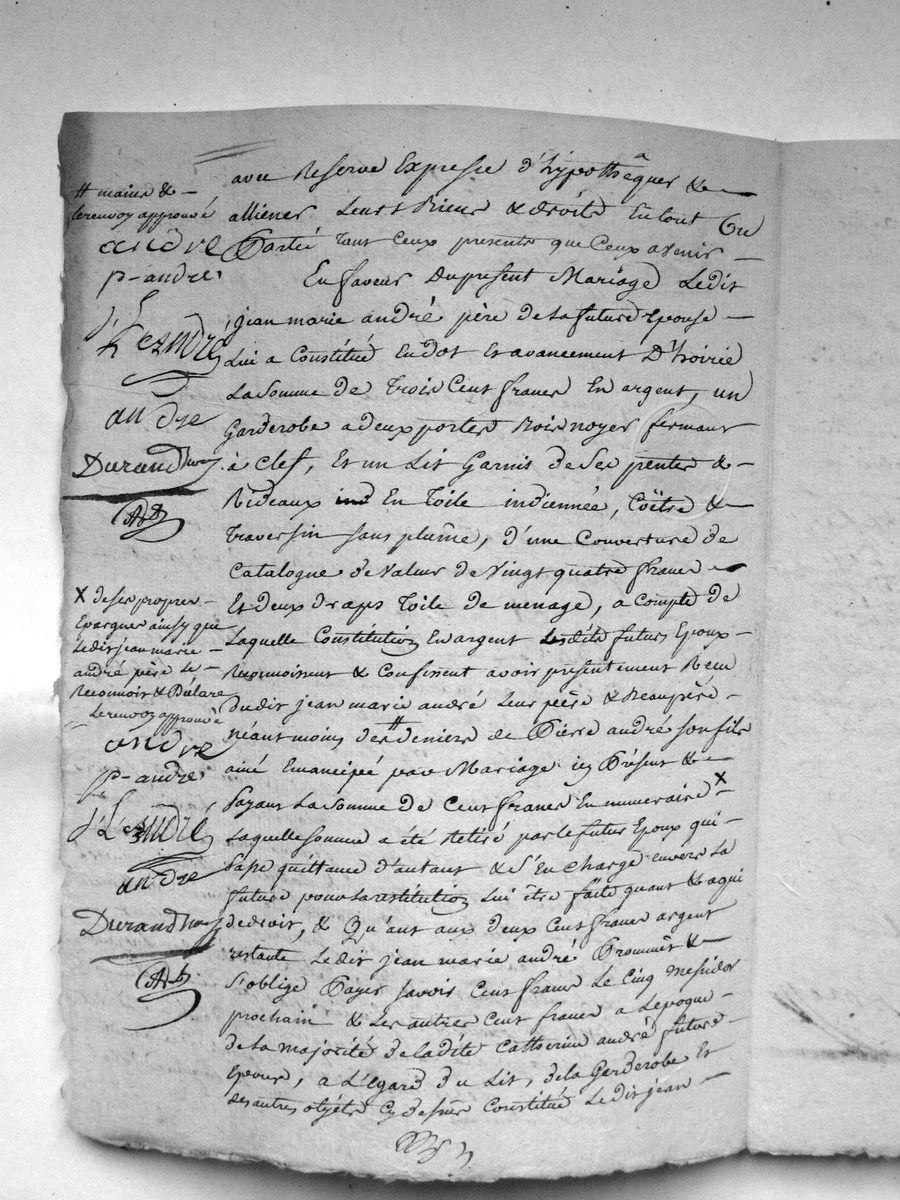 avec Reserve Expresse d'hypothêquer &
alliéner leurs Biens & droits En tout Ou
Partie tant ceux presents que Ceux avenir
En faveur Du present Mariage Ledit
jean marie andré père de la future Epouse
Lui a Constitué En dot Et avancement D'hoirie
La Somme de trois Cent francs En argent, un
Garderobe a deux portes Bois noyer fermant
à Clef, Et un Lit Garnis de Ses pentes &
Rideaux En toile indiennée, Coëtre &
traversin sans plume, d'une Couverture de
Catalogne de valeur de vingt quatre francs
Et deux draps toile de menage, a Compte de
Laquelle Constitution En argent Lesdits futurs Epoux
Reconnoissent & Confessent avoir présentement Reçu
dudit jean marie andré Leur père & Beaupère
néant moins des # deniers de Pierre andré son fils
ainé Emancipé par Mariage icy Présent &
payant La Somme de Cent francs En numeraire X
Laquelle somme a été Retiré par le futur Epoux qui
passe quittance d'autant & S'En Charge envers La
future pour la restitution Lui être faite quant & a qui
de droit, & Qu'ant aux deux Cent francs argent
restants Ledit jean marie andré Promet &
S'oblige Payer Savoir Cent francs Le Cinq Messidor
prochain & Les autres Cent francs a L'epoque
de La majorité de Ladite Catherine andré future
Epouse, a L'Egard du Lit, de la Garderobe Et
des autres objets Cy dessus Constitué Ledit jean
# maries &
Le renvoy approuvé
andre
p-andre
andre
Durand
X de ses propres
Epargnes ainsy que
Ledit jean marie
andré père Le
Reconnois & Déclare
Le renvoy approuvé
andre
p-andre
andre
Durand